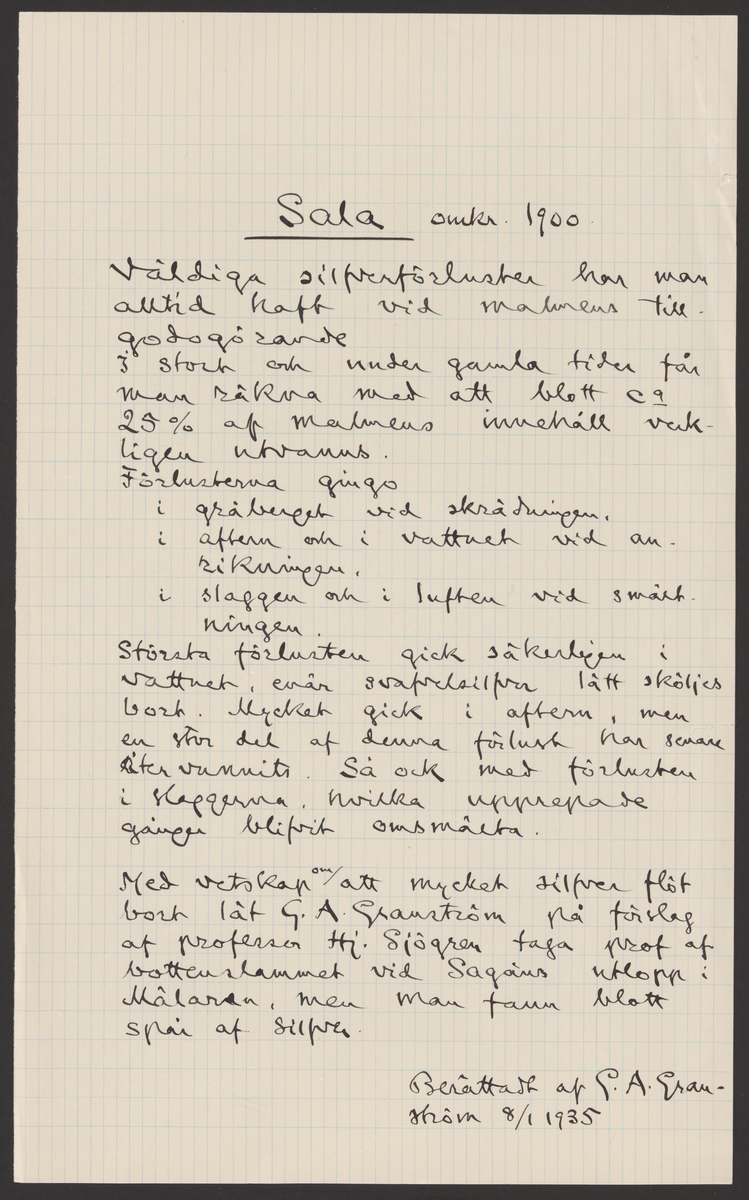 Sala omkr. 1900.
Väldiga silfverförluster har man
alltid haft vid malmens till-
godogörande
I stort och under gamla tider får
man räkna med att blott ca
25% af malmens innehåll verk-
ligen utvanns.
Förlusterna gingo
i gråberget vid skrädningen,
i aftern och i vattnet vid an-
rikningen,
i slaggen och i luften vid smält-
ningen.
Största förlusten gick säkerligen i
vattnet, enär svafvelsilfver lätt sköljes
bort. Mycket gick i aftern, men
en stor del af denna förlust har senare
återvunnits. Så ock med förlusten
i slaggerna, hvilka upprepade
gånger blifvit omsmälta.
Med vetskap om att mycket silfver flöt
bort lät G. A. Granström på förslag
af professor Hj. Sjögren taga prof af
bottenslammet vid Sagåns utlopp i
Mälaren, men man fann blott
spår af silfver.
Berättadt af G. A. Gran-
ström 8/1 1935